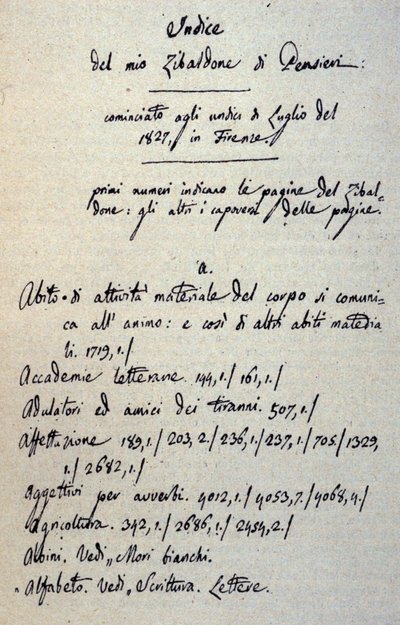 Indice
del mio Zibaldone di Pensieri:
cominciato agli undici di Luglio del
1827, in Firenze.
primi numeri indicano le pagine del Zibal=
done: gli altri i capoversi delle pagine.
a.
Abito di attività materiale del corpo si comuni-
ca all' animo: e così di altri abiti materia
li. 1719,1./
Accademie letterarie. 144,1./ 161,1./
Adulatori ed amici dei tiranni. 507,1./
Affettazione 189,1./ 203,2./ 236,1./ 237,1./ 705./ 1329,
1./ 2682,1./
Aggettivi per avverbi. 4012,1./ 4053,7./ 4068,4./
Agricoltura. 342,1./ 2686,1./ 2454,2./
Albini. Vedi Mori bianchi.
Alfabeto. Vedi Scrittura. Lettere.